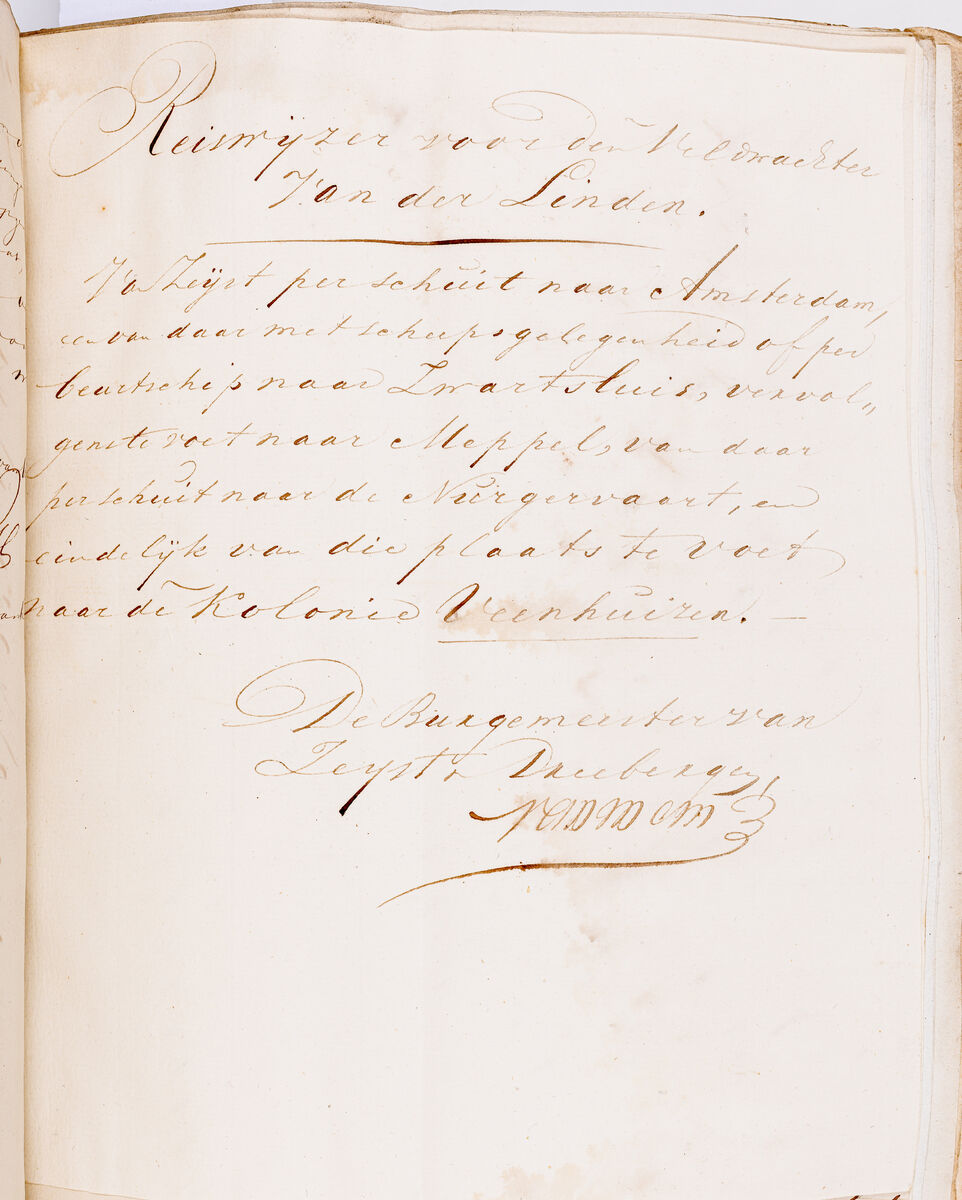 Reiswijzer voor den Veldwachter
Van der Linden.
Va Zeijst per schuit naar Amsterdam,
een van daar met scheepsgelegenheid of per
beurtschip naar Zwartsluis, vervol„
gens te voet naar Meppel, van daar
per schuit naar de Nurgervaart, en
eindelijk van die plaats te voet
naar de Kolonie Veenhuizen. —
De Burgemeester van
Zeyst & Driebergen,